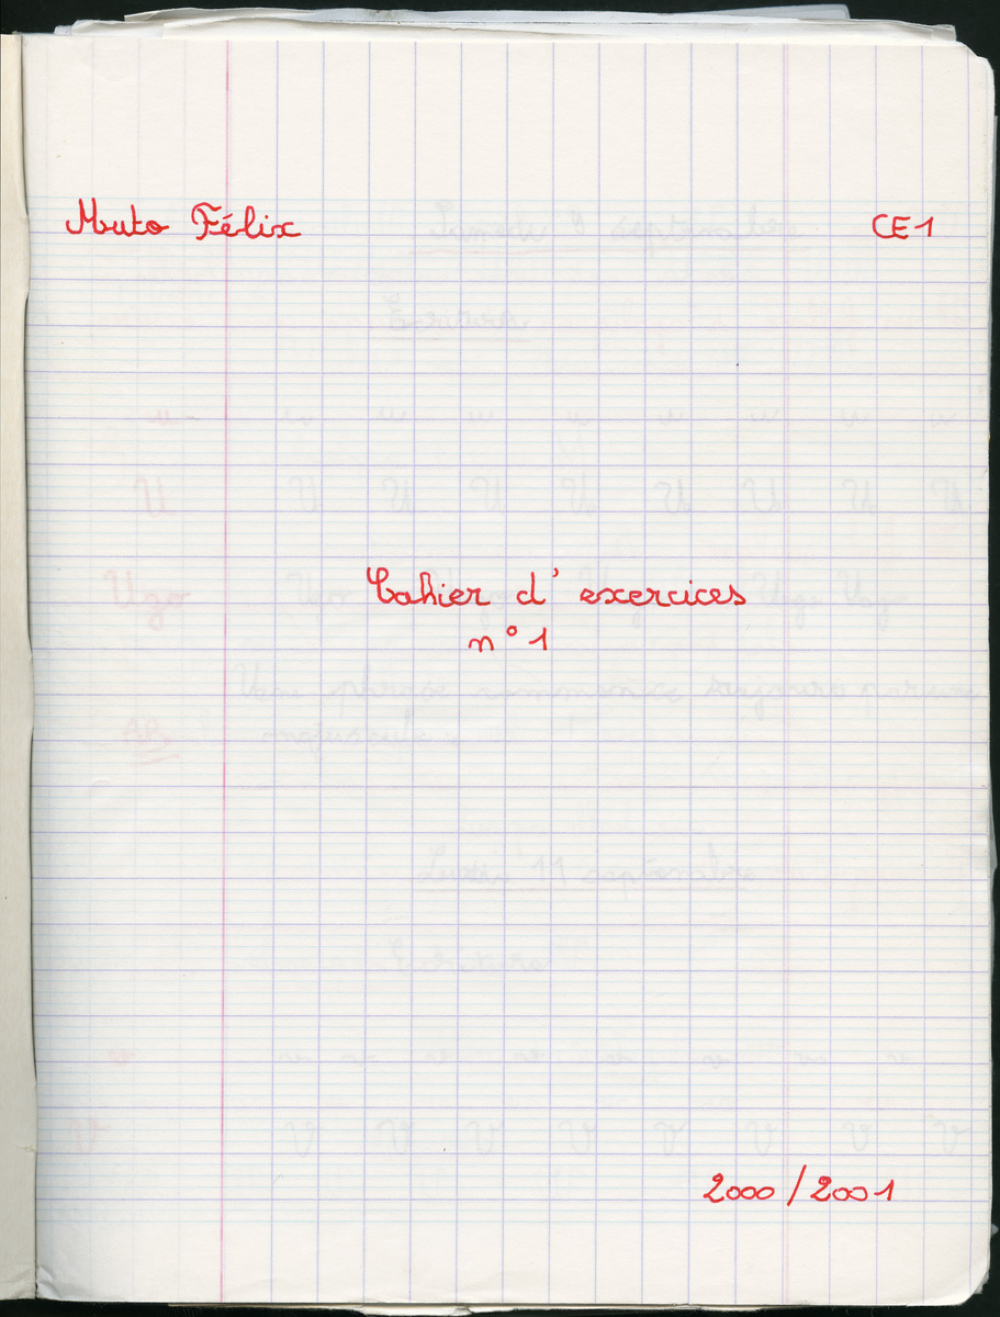 Muto Félix CE1
Cahier d'exercices
n°1
2000/2001